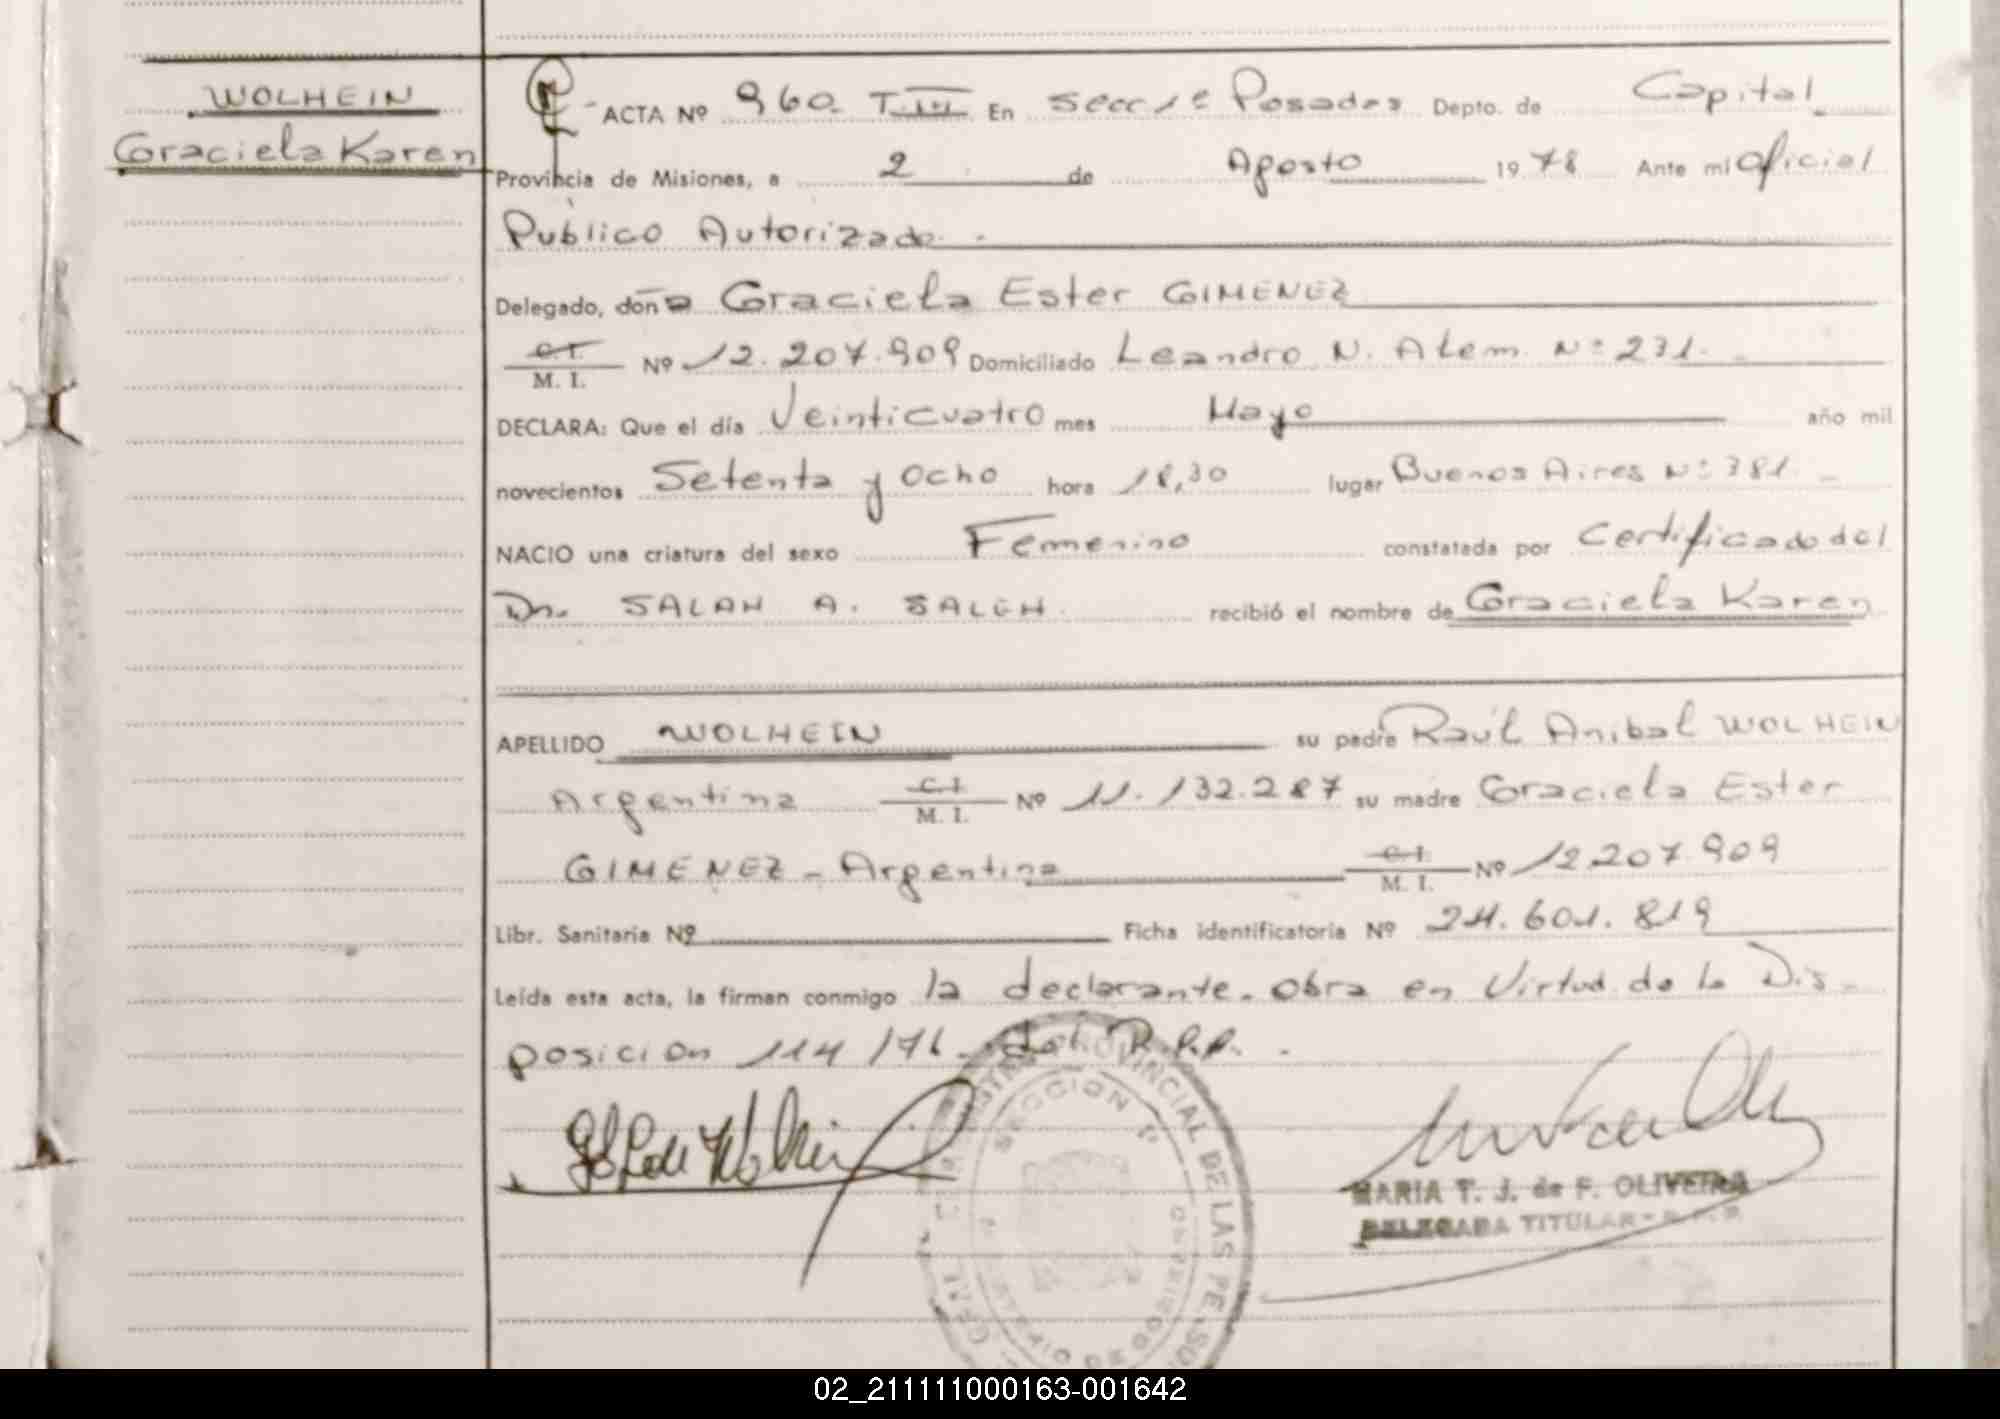 WOLHEIN
Graciela Karen
ACTA Nº 960. T.III En Secc 1ª Posadas Depto. de Capital
Provincia de Misiones, a 2 de Agosto 1978 Ante mi Oficial
Público Autorizado.-
Delegado, doña Graciela Ester GIMENEZ
C.I. M. I. Nº 12.207.909 Domiciliado Leandro N. Alem Nº 231.-
DECLARA: Que el día Veinticuatro mes Mayo año mil
novecientos Setenta y Ocho hora 18,30 lugar Buenos Aires Nº 381.-
NACIO una criatura del sexo Femenino constatada por Certificado del
Dr. SALAH A. SALEH. recibió el nombre de Graciela Karen
APELLIDO WOLHEIN su padre Raúl Anibal WOLHEIN
Argentina C.I. M. I. Nº 11.132.287 su madre Graciela Ester
GIMENEZ - Argentina C.I. M. I. Nº 12.207.909
Libr. Sanitaria Nº Ficha identificatoria Nº 24.601.819
Leída esta acta, la firman conmigo la declarante. obra en Virtud de la Dis-
posicion 114/76. del R.P.P. -
PROVINCIAL DE LAS PERSO
SECCION 1ª
MARIA T. J. de F. OLIVEIRA
DELEGADA TITULAR - R.P.P.
02_211111000163-001642